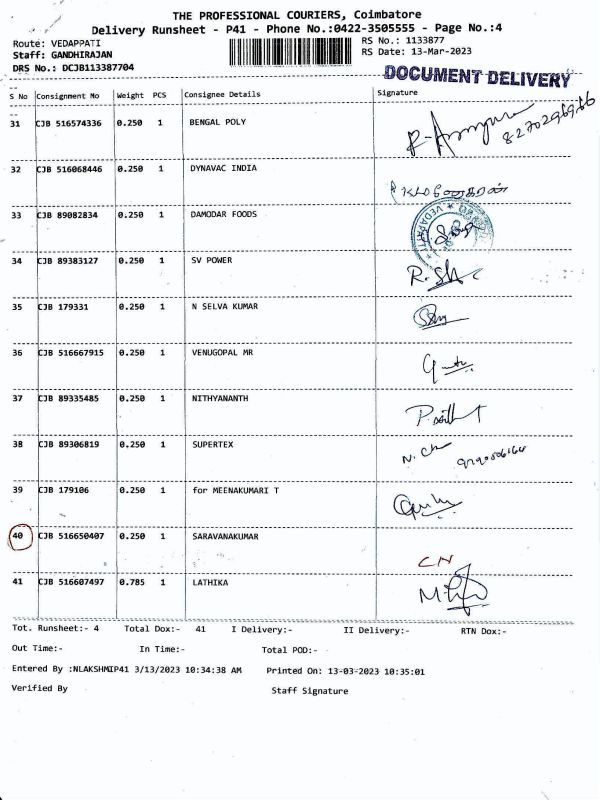 THE PROFESSIONAL COURIERS, Coimbatore
Delivery Runsheet - P41 - Phone No.:0422-3505555 - Page No.:4
Route: VEDAPPATI RS No.: 1133877
Staff: GANDHIRAJAN RS Date: 13-Mar-2023
DRS No.: DCJB113387704
DOCUMENT DELIVERY
S No Consignment No Weight PCS Consignee Details Signature
31 CJB 516574336 0.250 1 BENGAL POLY
32 CJB 516068446 0.250 1 DYNAVAC INDIA
33 CJB 89082834 0.250 1 DAMODAR FOODS
VEDAPATTI
34 CJB 89383127 0.250 1 SV POWER
35 CJB 179331 0.250 1 N SELVA KUMAR
36 CJB 516667915 0.250 1 VENUGOPAL MR
37 CJB 89335485 0.250 1 NITHYANANTH
38 CJB 89306819 0.250 1 SUPERTEX
39 CJB 179106 0.250 1 for MEENAKUMARI T
40 CJB 516650407 0.250 1 SARAVANAKUMAR CN
41 CJB 516607497 0.785 1 LATHIKA
Tot. Runsheet:- 4 Total Dox:- 41 I Delivery:- II Delivery:- RTN Dox:-
Out Time:- In Time:- Total POD:-
Entered By :NLAKSHMIP41 3/13/2023 10:34:38 AM Printed On: 13-03-2023 10:35:01
Verified By Staff Signature